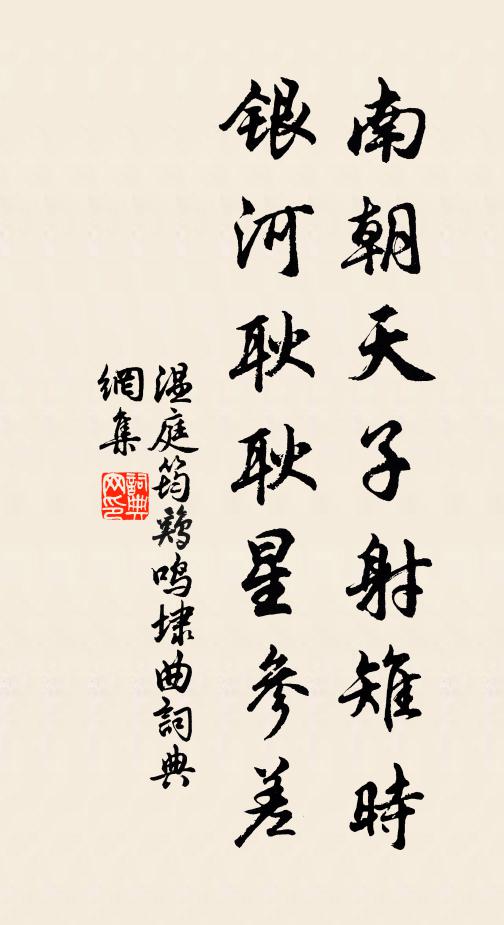 南朝天子射雉時
銀河耿耿星參差
温庭筠鷄鳴埭曲詞典
網集
詞典
网印